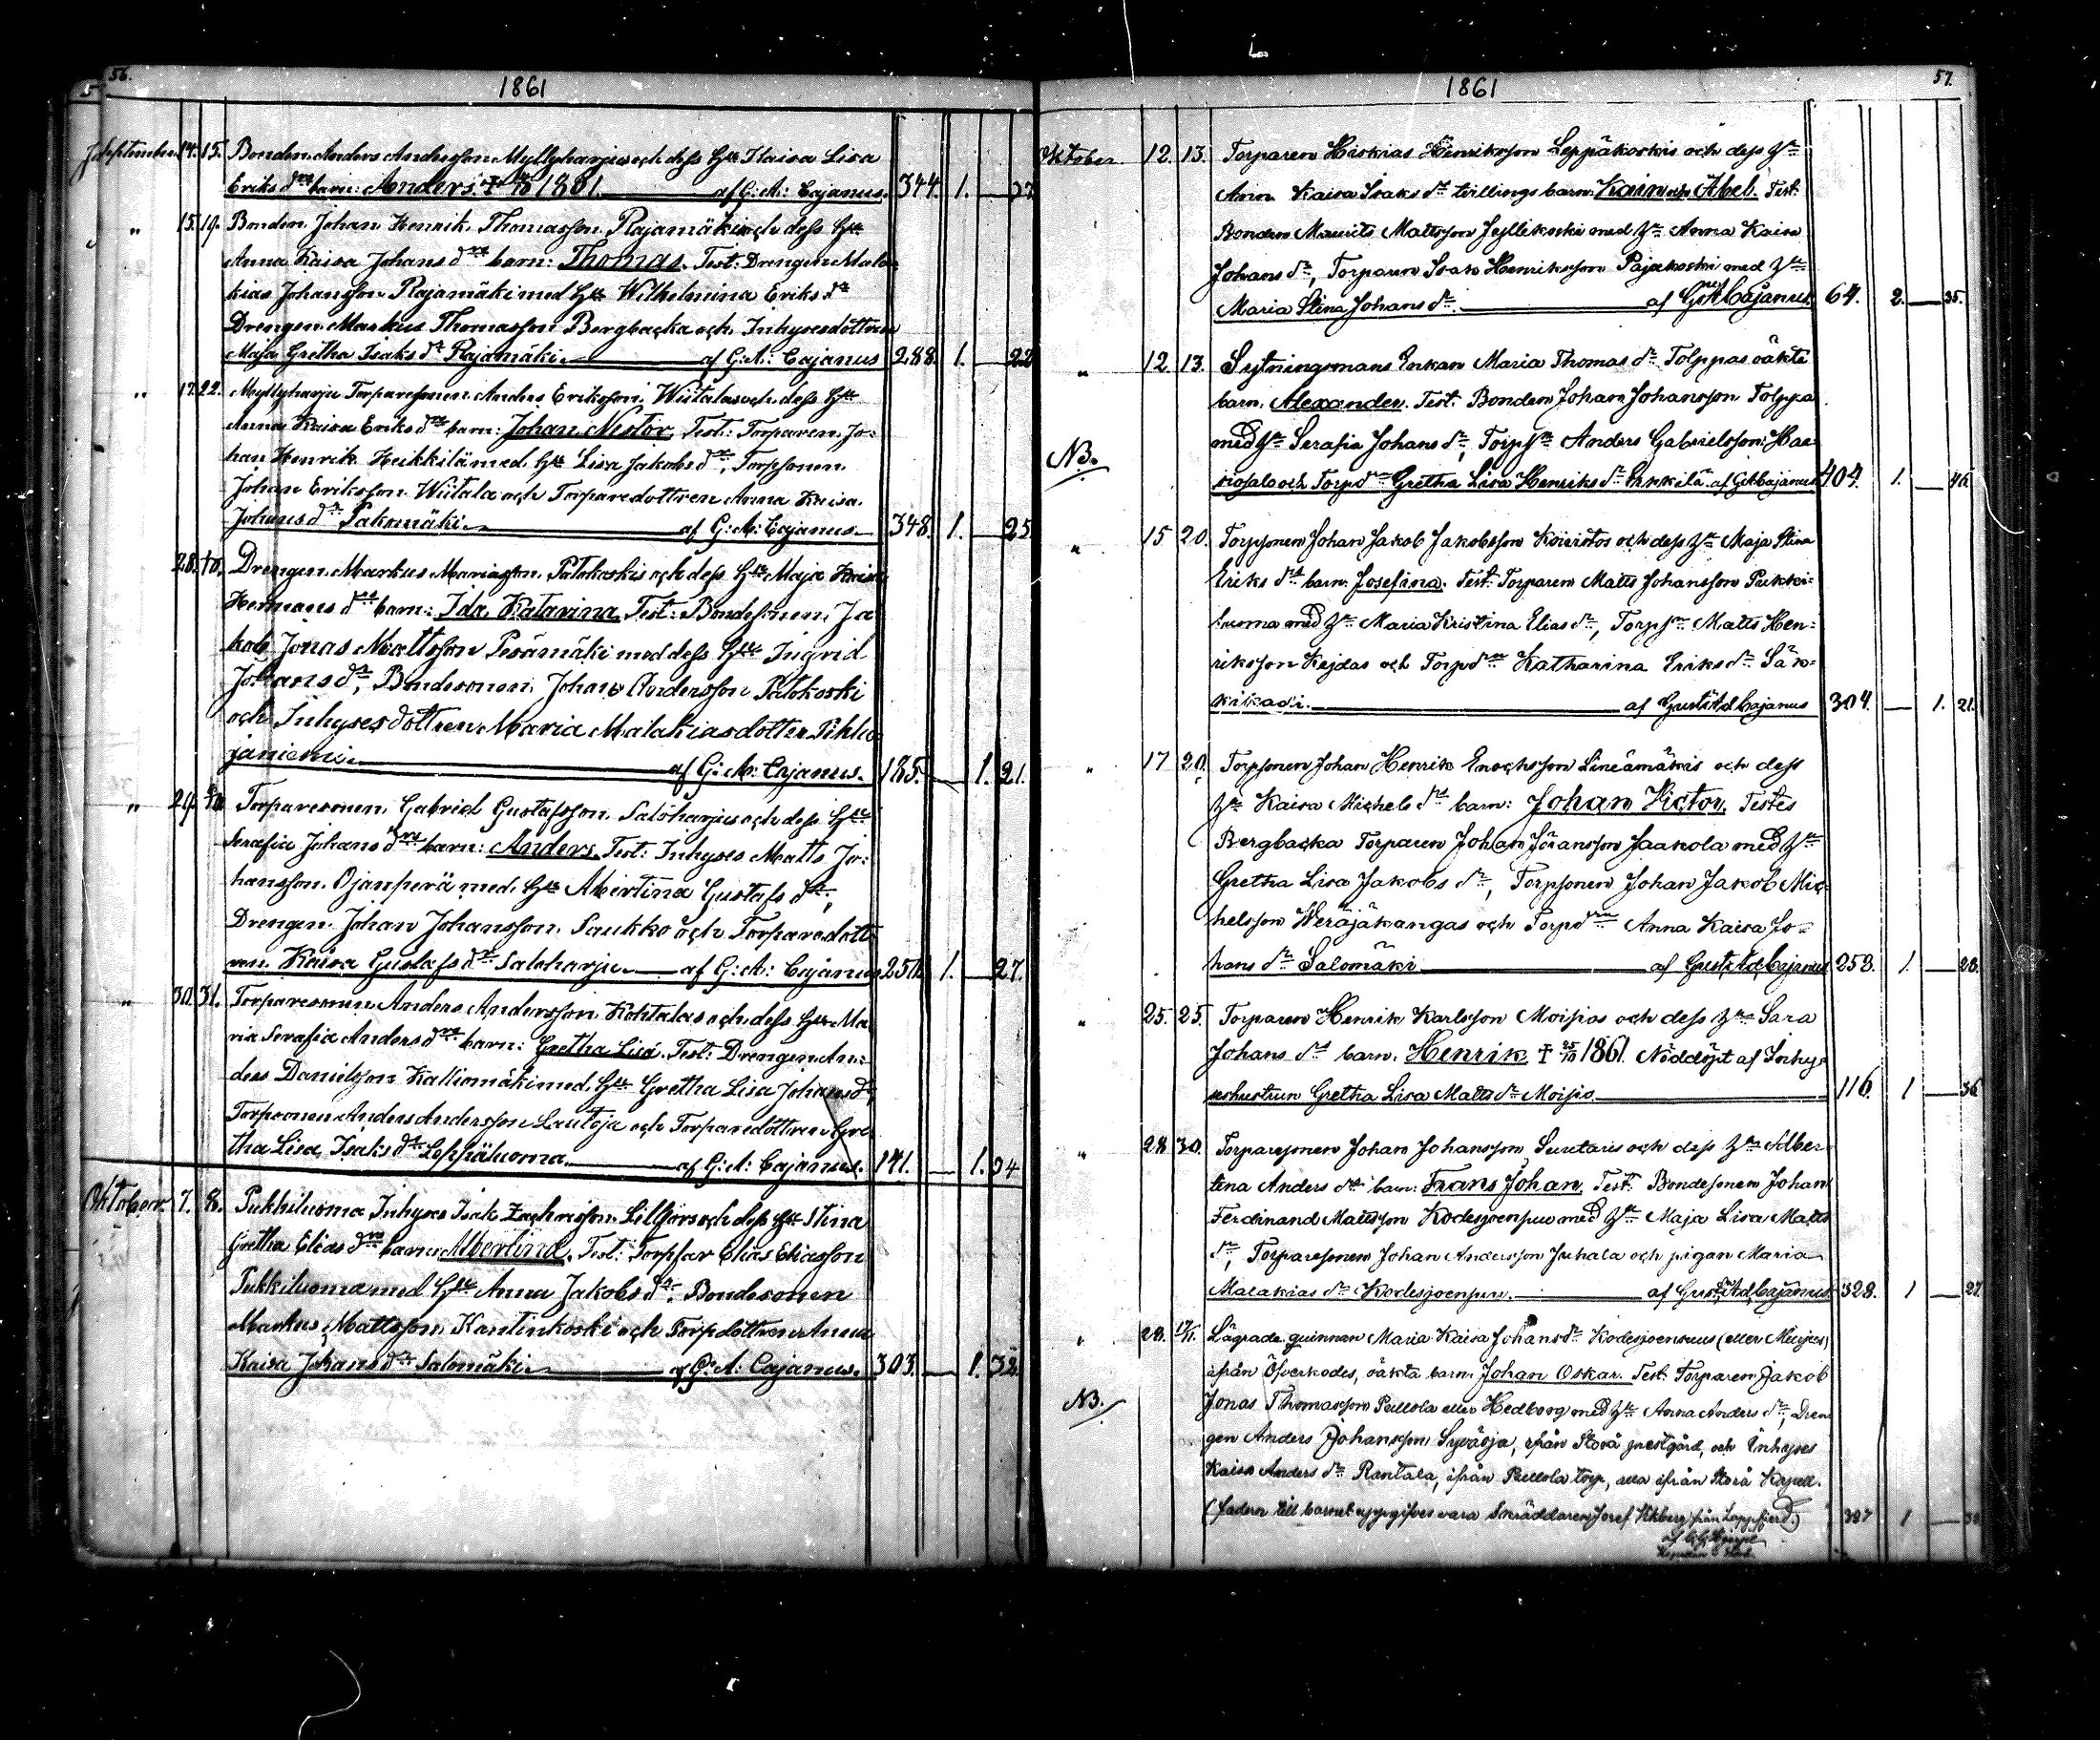 56.
1861
September 14. 15. Bonden Anders Andersson Myllyharjus och dess Hu Kaisa Lisa
Eriks drs barn: Anders. 1861. af G: A: Cajanus. 344. 1.
" 15. 19. Bonden Johan Henrik Thomasson Rajamäkis och dess Hu
Anna Kaisa Johans drs barn: Thomas. Test: Drengen Mala
kias Johansson Rajamäki med Hu Wilhelmina Eriks dr
Drengen Markus Thomasson Bergbacka och Inhysesdottren
Maja Gretha Isaks dr Rajamäki. af G: A: Cajanus 288. 1. 22
" 17. 22. Myllyharju Torparesonen Anders Eriksson Wiitalas och dess Hu
Anna Kaisa Eriks drs barn: Johan Nestor. Test: Torparen Jo:
han Henrik Heikkilä med Hu Lisa Jakobs dr, Torpsonen
Johan Eriksson Wiitala och Torparedottren Anna Kaisa
Johans dr Salomäki. af G: A: Cajanus 348. 1. 25
28. Drengen Markus Mariasson Patokoskis och dess Hu Maja Kaisa
Hermans drs barn: Ida Katarina. Test: Bondesonen Ja
kob Jonas Mattsson Pesämäki med dess Hu Ingrid
Johans dr, Bondesonen Johan Andersson Patokoski
och Inhysesdottren Maria Malakiasdotter Pihla
janiemi. af G: A: Cajanus. 185. 1. 21.
" 29. Torparesonen Gabriel Gustafsson Saloharjus och dess Hu
Serafia Johans drs barn: Anders. Test: Inhyses Matts Jo:
hansson Ojanperä med Hu Albertina Gustafs dr,
Drengen Johan Johansson Saukko och Torparedott
ren Kaisa Gustafs dr Saloharju. af G: A: Cajanus 1. 27.
" 30. 31. Torparesonen Anders Andersson Kohtalas och dess Hu Ma
ria Serafia Anders drs barn: Gretha Lisa. Test: Drengen An:
ders Danielsson Kalliomäki med Hu Gretha Lisa Johans dr,
Torpsonen Anders Andersson Lautoja och Torparedottren Gre
tha Lisa Isaks dr Leppäluoma. af G: A: Cajanus. 141. 1. 24
Oktober 7. 8. Pukkiluoma Inhyses Isak Zachrisson Lillsors och dess Hu Stina
Gretha Elias drs barn: Albertina. Test: Torpar Elias Eliasson
Pukkiluoma med Hu Anna Jakobs dr, Bondesonen
Markus Mattsson Kantinkoski och Torpdottren Anna
Kaisa Johans dr Salomäki. af G: A: Cajanus. 303. 1. 32
57.
1861
Oktober 12. 13. Torparen Hiskias Henriksson Leppäkoskis och dess Hu
Ann Kaisa Isaks drs tvillings barn: Kain och Abel. Test.
Bonden Maurits Mattsson Jyllikoski med Hu Anna Kaisa
Johans dr, Torparen Isak Henriksson Pajakoski med Hu
Maria Stina Johans dr. af Cajanus. 64. 2. 35.
" 12. 13. Sytningsmans Enkan Maria Thomas dr Tolppas oäkta
barn. Alexander. Test. Bonden Johan Johansson Tolppa
NB. med Hu Serafia Johans dr, Torps Anders Gabrielsson Haa
riosalo och Torpd Gretha Lisa Henriks dr Erkkilä. af Cajanus 404. 1. 46.
" 15 20. Torpsonen Johan Jakob Jakobsson Koivistos och dess Hu Maja Stina
Eriks drs barn. Josefina. Test. Torparen Matts Johansson Pukki=
luoma med Hu Maria Kristina Elias dr, Torps Matts Hen=
riksson Kejdas och Torpd Katharina Eriks dr Säk=
kikadi. af Gust. Ad. Cajanus 304. 1. 21.
" 17 20. Torpsonen Johan Henrik Enochsson Lineämäkis och dess
Hu Kaisa Michels drs barn: Johan Victor. Testes
Bergbacka Torparen Johan Jöransson Jaakola med Hu
Gretha Lisa Jakobs dr, Torpsonen Johan Jakob Mic
helsson Weräjäkangas och Torpd Anna Kaisa Jo=
hans dr Salomäki af Gust. Ad. Cajanus 253. 1. 28.
" 25. 25. Torparen Henrik Karlsson Moisios och dess Hu Sara
Johans drs barn. Henrik † 25/10 1861. Nöddöpt af Inhy
seshustrun Gretha Lisa Matts dr Moisio. 116. 1 36
" 28 30. Torparesonen Johan Johansson Luntaris och dess Hu Alber
tina Anders drs barn: Frans Johan. Test. Bondesonen Johan
Ferdinand Mattsson Kodesjoenpuu med Hu Maja Lisa Matts
dr, Torparesonen Johan Andersson Juhala och pigan Maria
Malakias dr Kodesjoenpuu. af Gust. Ad. Cajanus 328. 1 27
" 29. Lägrade quinnan Maria Kaisa Johans dr Kodesjoensuus (eller Meijers)
ifrån Öfverkodes, oäkta barn. Johan Oskar. Test. Torparen Jakob
NB. Jonas Thomasson Pullola eller Hedborg med Hu Anna Anders dr, Dren
gen Anders Johansson Syväoja, ifrån Storå prestgård, och Inhyses
Kaisa Anders dr Rantala, ifrån Pullola torp, alla ifrån Storå Kapell.
(fadren till barnet uppgifves vara Skräddaren Josef från Lappfjerd.) 387 1